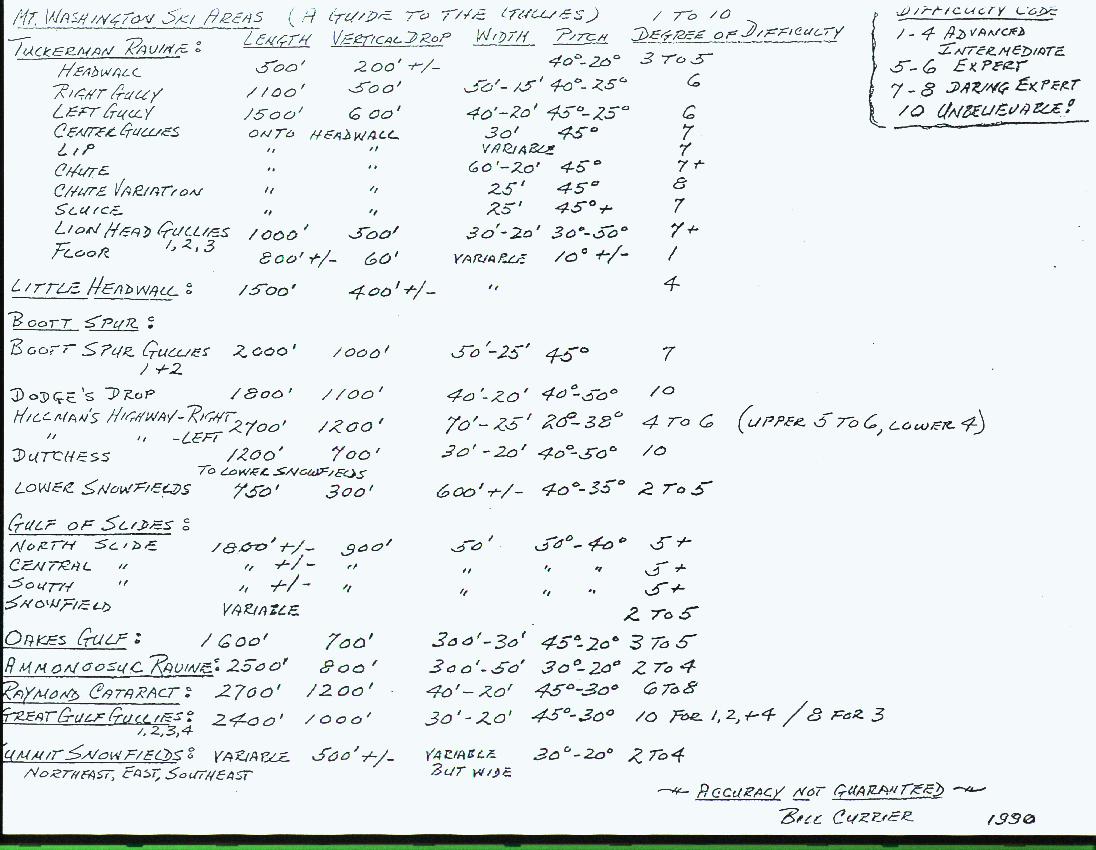 MT. WASHINGTON SKI AREAS (A GUIDE TO THE GULLIES) 1 TO 10
TUCKERMAN RAVINE: LENGTH VERTICAL DROP WIDTH PITCH DEGREE OF DIFFICULTY
HEADWALL 500' 200' +/- 40°-20° 3 TO 5
RIGHT GULLY 1100' 500' 50'-15' 40°-25° 6
LEFT GULLY 1500' 600' 40'-20' 45°-25° 6
CENTER GULLIES ONTO HEADWALL 30' 45° 7
LIP " " VARIABLE 7
CHUTE " " 60'-20' 45° 7+
CHUTE VARIATION " " 25' 45° 8
SLUICE " " 25' 45°+ 7
LION HEAD GULLIES 1000' 500' 30'-20' 30°-50° 7+
1,2,3
FLOOR 800'+/- 60' VARIABLE 10° +/- 1
LITTLE HEADWALL: 1500' 400'+/- " 4
BOOTT SPUR:
BOOTT SPUR GULLIES 2000' 1000' 50'-25' 45° 7
1+2
DODGE'S DROP 1800' 1100' 40'-20' 40°-50° 10
HILLMAN'S HIGHWAY-RIGHT 2700' 1200' 70'-25' 20°-38° 4 TO 6 (UPPER 5 TO 6, LOWER 4)
" " -LEFT
DUTCHESS 1200' 700' 30'-20' 40°-50° 10
TO LOWER SNOWFIELDS
LOWER SNOWFIELDS 750' 300' 600'+/- 40°-35° 2 TO 5
GULF OF SLIDES:
NORTH SLIDE 1800'+/- 900' 50' 50°-40° 5+
CENTRAL " " +/- " " " " 5+
SOUTH " " +/- " " " " 5+
SNOWFIELD VARIABLE 2 TO 5
OAKES GULF: 1600' 700' 300'-30' 45°-20° 3 TO 5
AMMONOOSUC RAVINE: 2500' 800' 300'-50' 30°-20° 2 TO 4
RAYMOND CATARACT: 2700' 1200' 40'-20' 45°-30° 6 TO 8
GREAT GULF GULLIES: 2400' 1000' 30'-20' 45°-30° 10 FOR 1,2,+4 / 8 FOR 3
1,2,3,4
UMMIT SNOWFIELDS: VARIABLE 500'+/- VARIABLE 30°-20° 2 TO 4
NORTHEAST, EAST, SOUTHEAST BUT WIDE
ACCURACY NOT GUARANTEED
BILL CURRIER 1990
DIFFICULTY CODE
1-4 ADVANCED
INTERMEDIATE
5-6 EXPERT
7-8 DARING EXPERT
10 UNBELIEVABLE!